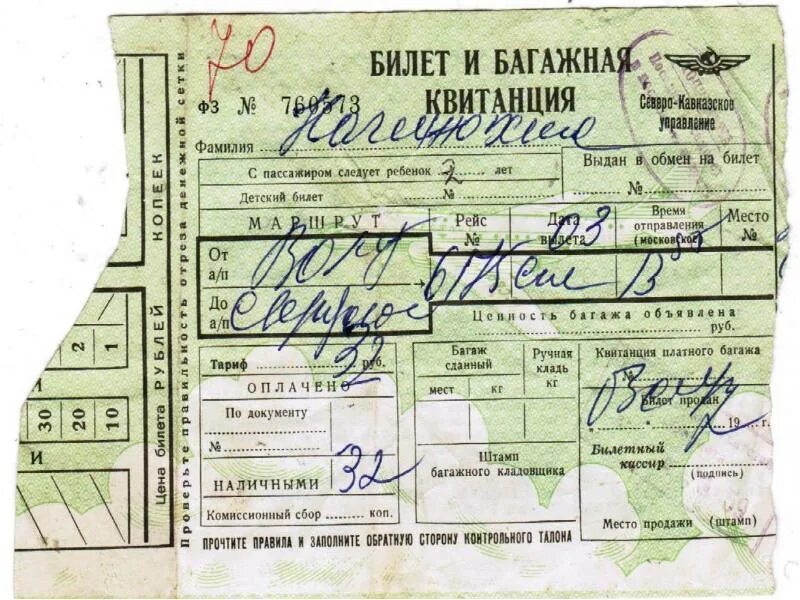 70
БИЛЕТ И БАГАЖНАЯ
КВИТАНЦИЯ
ФЗ № 760573
Северо-Кавказское
управление
Фамилия
С пассажиром следует ребенок 2 лет
Детский билет №
Выдан в обмен на билет
№
МАРШРУТ
Рейс
№
Дата
вылета
03
Время
отправления
(московское)
Место
№
От
а/п
Волг
До
а/п
6175
Ценность багажа объявлена
руб.
Тариф 32 руб.
ОПЛАЧЕНО
По документу
№
НАЛИЧНЫМИ 32
Комиссионный сбор коп.
Багаж
сданный
мест кг
Ручная
кладь
кг
Штамп
багажного кладовщика
Квитанция платного багажа
№
Билет продан
19 г.
Билетный
кассир
(подпись)
Место продажи (штамп)
ПРОЧТИТЕ ПРАВИЛА И ЗАПОЛНИТЕ ОБРАТНУЮ СТОРОНУ КОНТРОЛЬНОГО ТАЛОНА
Проверьте правильность отреза денежной сетки
Цена билета РУБЛЕЙ КОПЕЕК
2 1
30 20 10
И